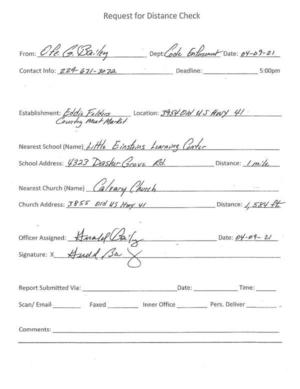 Request for Distance Check
From: Ofc. G. Bailey Dept: Code Enforcement Date: 04-09-21
Contact Info: 229-671-3072 Deadline: 5:00pm
Establishment: Eddie Location: 3954 Old US Hwy 41
Country Meat Market
Nearest School (Name) Little Einsteins Learning Center
School Address: 4323 Dasher Grove Rd. Distance: 1 mile
Nearest Church (Name) Calvary Church
Church Address: 3855 Old US Hwy 41 Distance: 1,584 ft
Officer Assigned: Date: 04-09-21
Signature: X
Report Submitted Via: Date: Time:
Scan/ Email Faxed Inner Office Pers. Deliver
Comments: